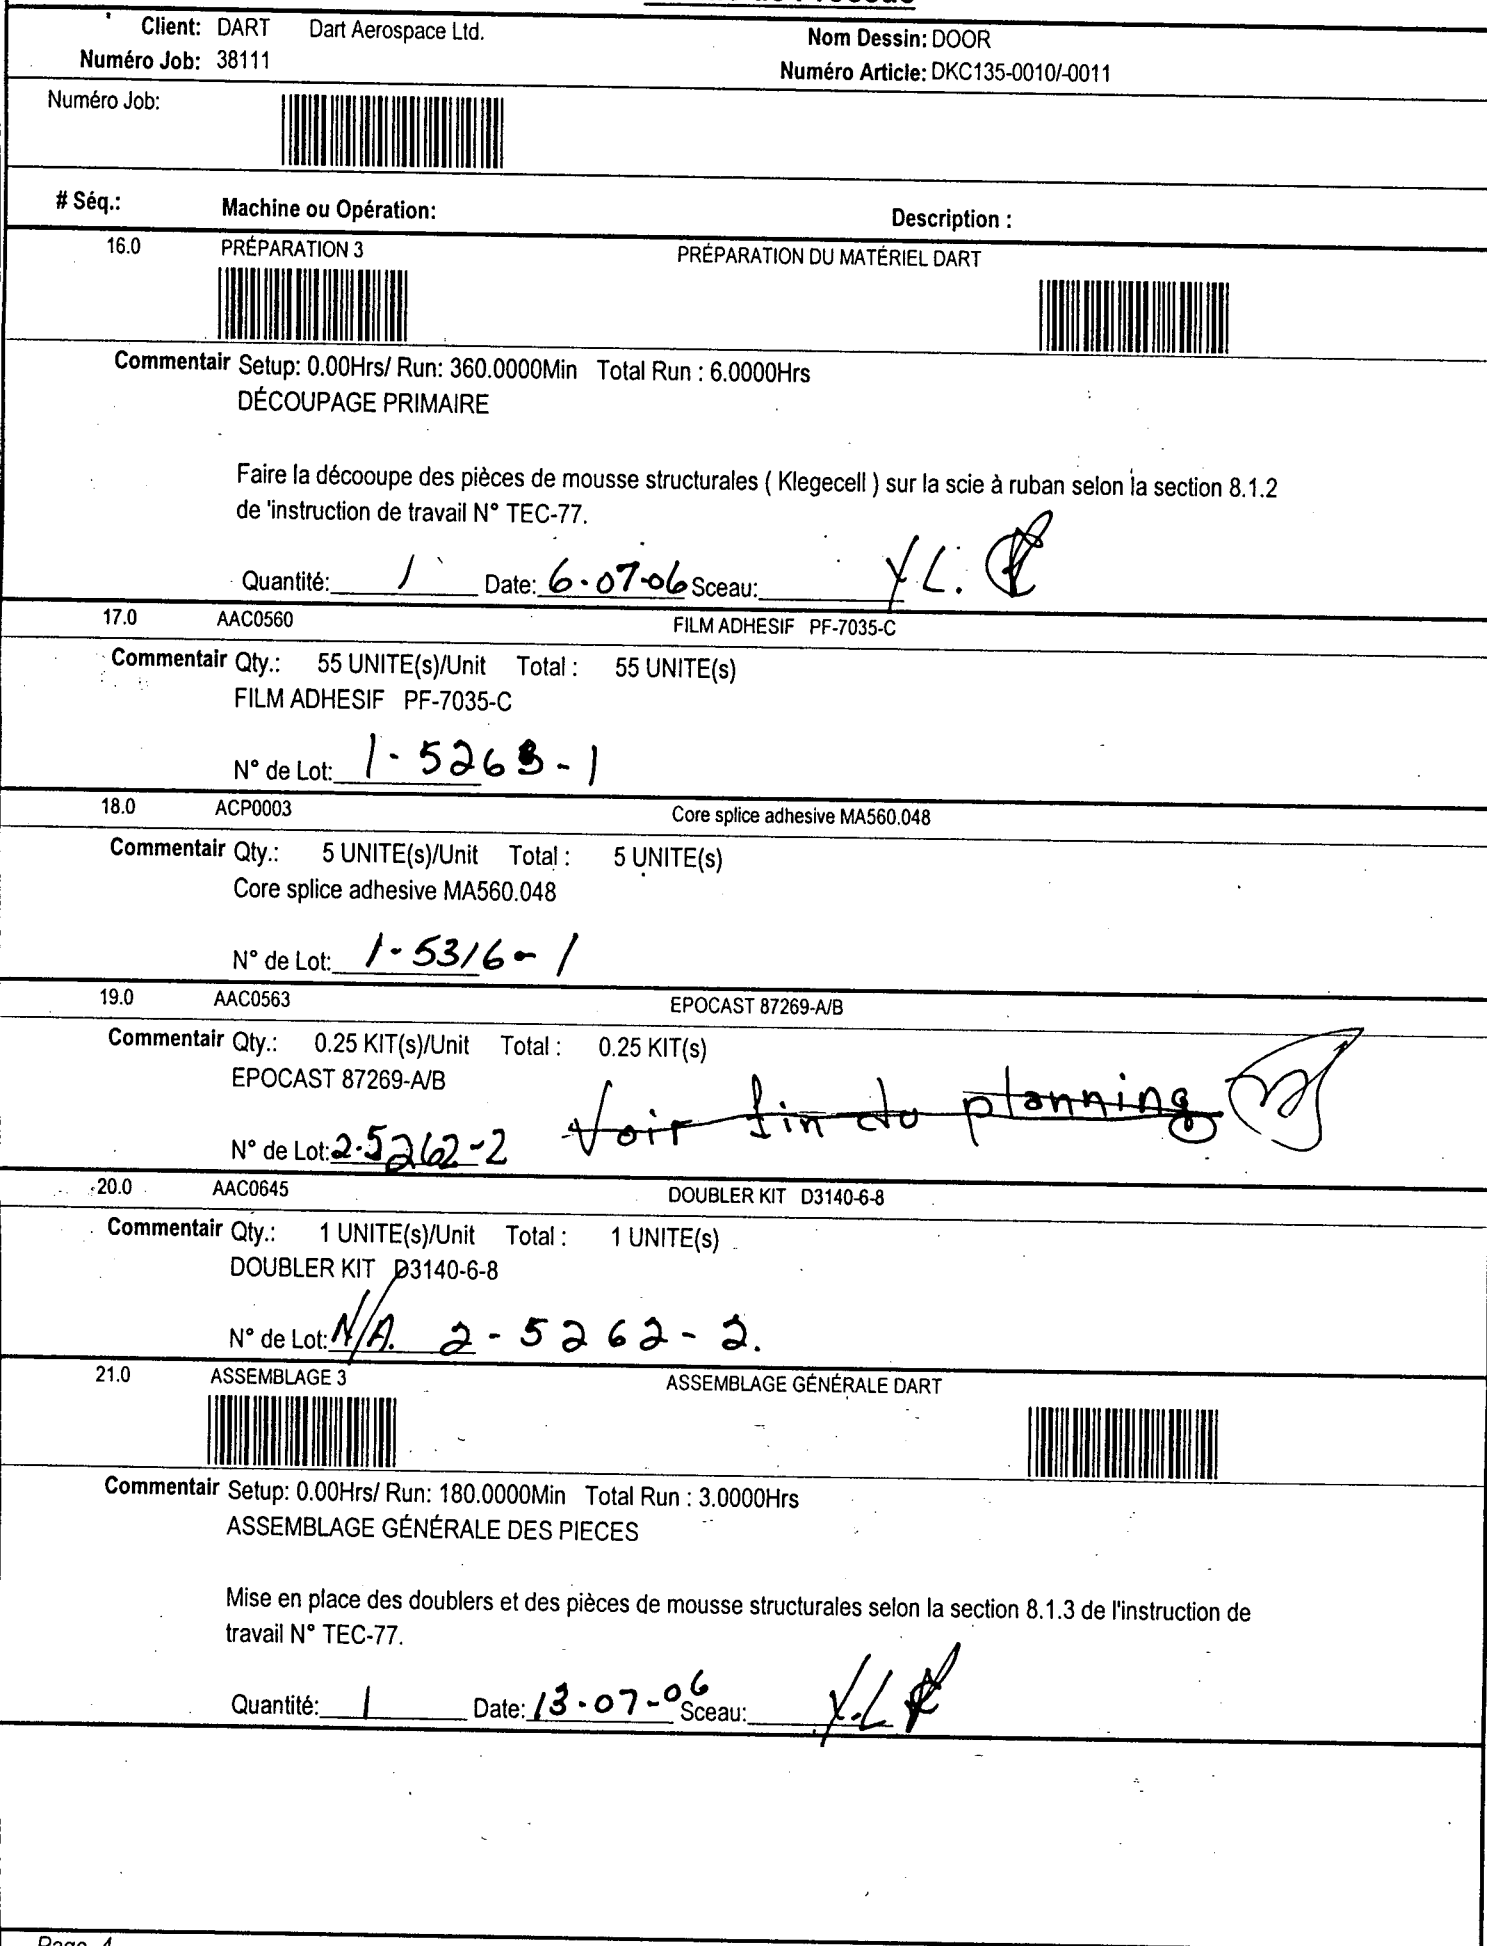 Client: DART Dart Aerospace Ltd. Nom Dessin: DOOR
Numéro Job: 38111 Numéro Article: DKC135-0010/-0011
Numéro Job:
# Séq.: Machine ou Opération: Description :
16.0 PRÉPARATION 3 PRÉPARATION DU MATÉRIEL DART
Commentair Setup: 0.00Hrs/ Run: 360.0000Min Total Run : 6.0000Hrs
DÉCOUPAGE PRIMAIRE
Faire la décooupe des pièces de mousse structurales ( Klegecell ) sur la scie à ruban selon la section 8.1.2
de 'instruction de travail N° TEC-77.
Quantité: 1 Date: 6-07-06 Sceau: Y.L.
17.0 AAC0560 FILM ADHESIF PF-7035-C
Commentair Qty.: 55 UNITE(s)/Unit Total : 55 UNITE(s)
FILM ADHESIF PF-7035-C
N° de Lot: 1-5263-1
18.0 ACP0003 Core splice adhesive MA560.048
Commentair Qty.: 5 UNITE(s)/Unit Total : 5 UNITE(s)
Core splice adhesive MA560.048
N° de Lot: 1-5316-1
19.0 AAC0563 EPOCAST 87269-A/B
Commentair Qty.: 0.25 KIT(s)/Unit Total : 0.25 KIT(s)
EPOCAST 87269-A/B
Voir fin du planning
N° de Lot: 2-5262-2
20.0 AAC0645 DOUBLER KIT D3140-6-8
Commentair Qty.: 1 UNITE(s)/Unit Total : 1 UNITE(s)
DOUBLER KIT D3140-6-8
N° de Lot: N/A. 2-5262-2.
21.0 ASSEMBLAGE 3 ASSEMBLAGE GÉNÉRALE DART
Commentair Setup: 0.00Hrs/ Run: 180.0000Min Total Run : 3.0000Hrs
ASSEMBLAGE GÉNÉRALE DES PIECES
Mise en place des doublers et des pièces de mousse structurales selon la section 8.1.3 de l'instruction de
travail N° TEC-77.
Quantité: 1 Date: 13-07-06 Sceau: Y.L
Page 4